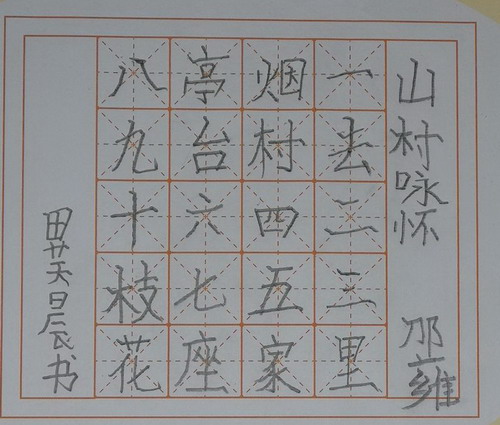 山村咏怀 邵雍
一去二三里
烟村四五家
亭台六七座
八九十枝花
田芙晨书